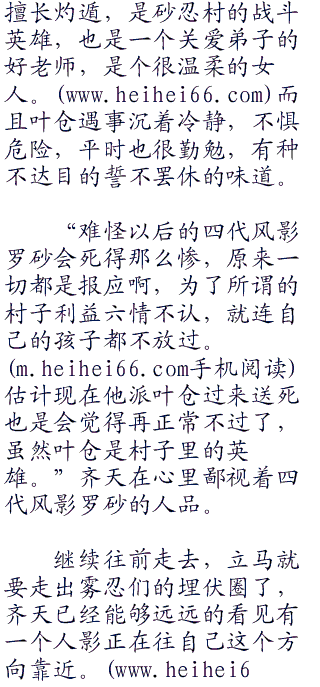 擅长灼遁，是砂忍村的战斗
英雄，也是一个关爱弟子的
好老师，是个很温柔的女
人。(www.heihei66.com)而
且叶仓遇事沉着冷静，不惧
危险，平时也很勤勉，有种
不达目的誓不罢休的味道。
“难怪以后的四代风影
罗砂会死得那么惨，原来一
切都是报应啊，为了所谓的
村子利益六情不认，就连自
己的孩子都不放过。
(m.heihei66.com手机阅读)
估计现在他派叶仓过来送死
也是会觉得再正常不过了，
虽然叶仓是村子里的英
雄。”齐天在心里鄙视着四
代风影罗砂的人品。
继续往前走去，立马就
要走出雾忍们的埋伏圈了，
齐天已经能够远远的看见有
一个人影正在往自己这个方
向靠近。(www.heihei6